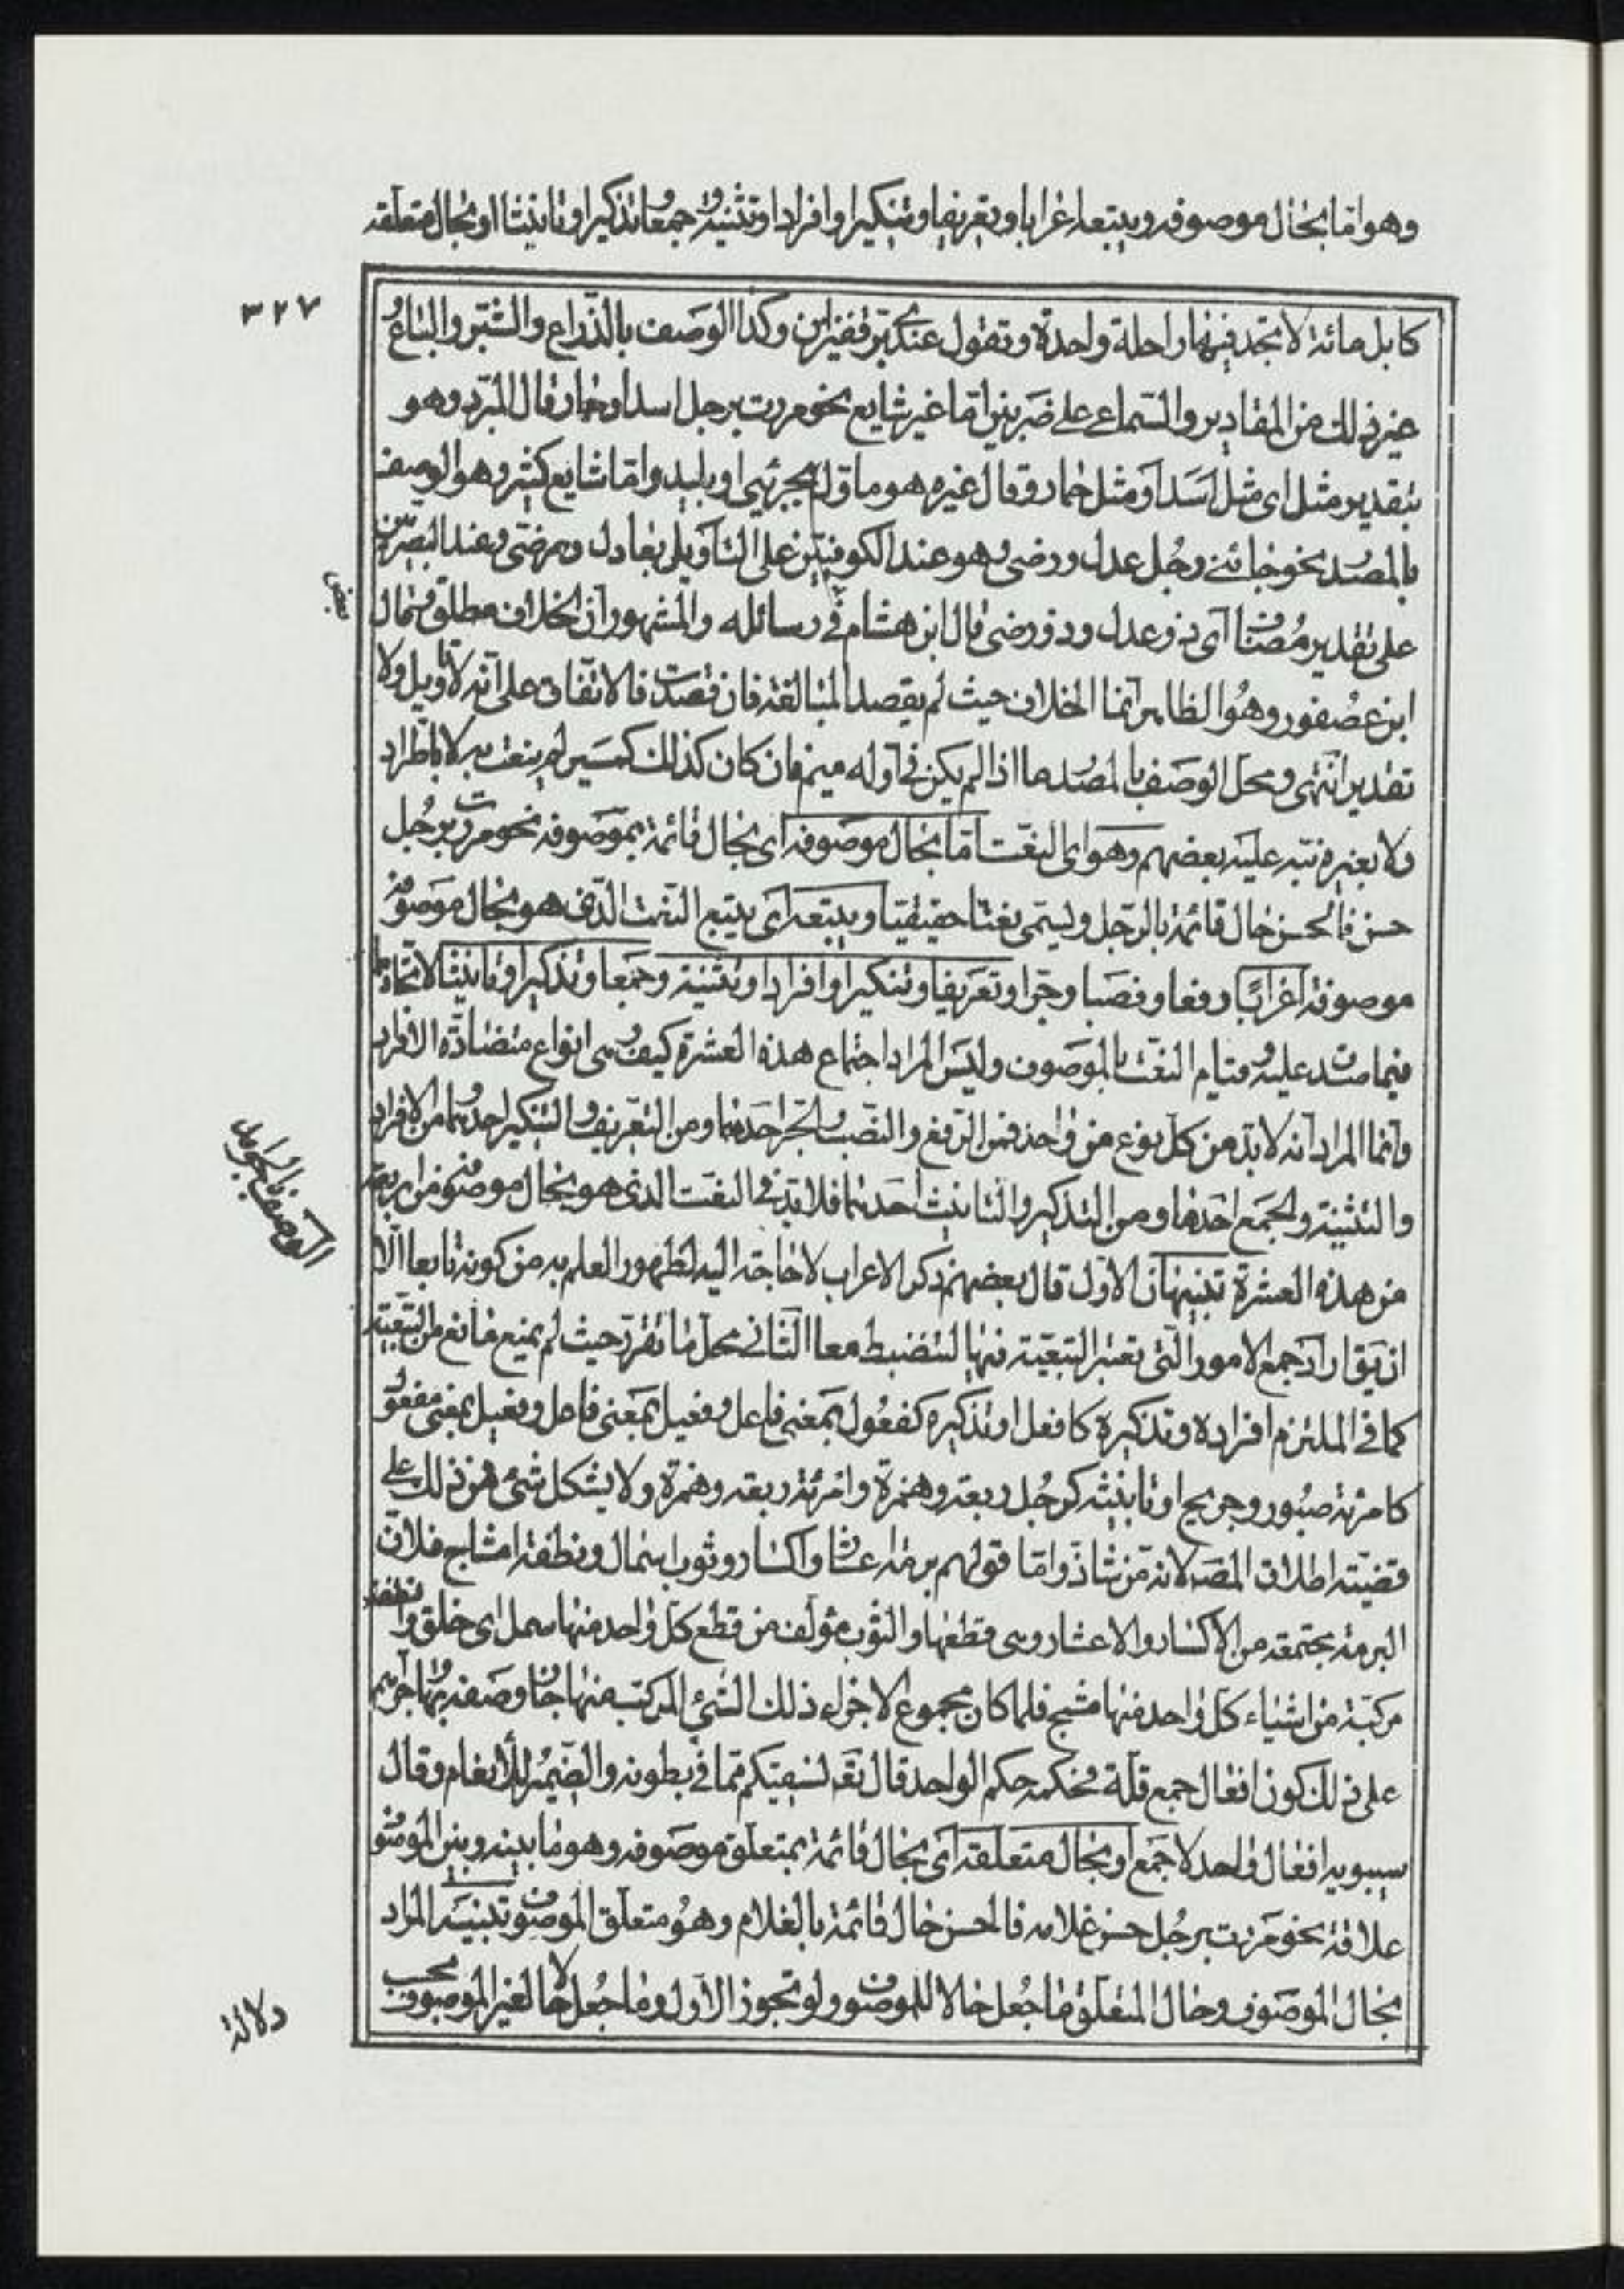 وهو اما بحال موصوفه ويتبعه اعرابا وتعريفا وتنكيرا وافرادا وتثنية وجمعا وتذكيرا وتانيثا او بحال متعلقه
٣٢٧
كابل مائة لا تجد فيها راحلة واحدة وتقول عندى بر قفيزان وكذا الوصف بالذراع والشبر والباع و
غير ذلك من المقادير والسماعى على ضربين اما غير شايع نحو مررت برجل اسد او حمار قال المبرد وهو
بتقدير مثل اى مثل اسد او مثل حمار وقال غيره هو ماول بجرئ او بليد واما شايع كثير وهو الوصف
بالمصدر نحو جائنى رجل عدل ورضى وهو عند الكوفيين على التاويل بعادل ومرضى وعند البصريين
على تقدير مضاف اى ذو عدل وذو رضى قال ابن هشام فى رسائله والمشهور ان الخلاف مطلق وقال
ابن عصفور وهو الظاهر انما الخلاف حيث لم يقصد المبالغة فان قصدت فالاتفاق على انه لا تاويل ولا
تقدير انتهى ومحل الوصف بالمصدر ما اذا لم يكن فى اوله ميم فان كان كذلك كمسير لم ينعت به لا باطراد
ولا بغيره نبه عليه بعضهم وهو اى النعت اما بحال موصوفه اى بحال قائمة بموصوفه نحو مررت برجل
حسن فالحسن حال قائمة بالرجل ويسمى نعتا حقيقيا ويتبعه اى يتبع النعت الذى هو بحال موصوفه
موصوفه اعرابا رفعا ونصبا وجرا وتعريفا وتنكيرا وافرادا وتثنية وجمعا وتذكيرا وتانيثا لاتحادهما
فيما صدق عليه وقيام النعت بالموصوف وليس المراد اجتماع هذه العشرة كيف وهى انواع متضادة الافراد
وانما المراد انه لا بد من كل نوع من واحد فمن الرفع والنصب والجر احدها ومن التعريف والتنكير احدهما ومن الافراد
والتثنية والجمع احدها ومن التذكير والتانيث احدهما فلا بد فى النعت الذى هو بحال موصوفه من اربعة
من هذه العشرة تنبيهان الاول قال بعضهم ذكر الاعراب لا حاجة اليه لظهور العلم به من كونه تابعا الا
ان يقال اراد جمع الامور التى تعتبر التبعية فيها لتنضبط معا الثانى محل ما تقرر حيث لم يمنع مانع من التبعية
كما فى الملتزم افراده وتذكيره كافعل او تذكيره كفعول بمعنى فاعل وفعيل بمعنى فاعل وفعيل بمعنى مفعول
كامرئة صبور وجريح او تانيثه كرجل ربعة وهمزة وامرئة ربعة وهمزة ولا يشكل شئ من ذلك على
قضية اطلاق المصـ لانه من شاذ واما قولهم برمة اعشار واكسار وثوب اسمال ونطفة امشاج فلان
البرمة مجتمعة من الاكسار والاعشار وهى قطعها والثوب مؤلف من قطع كل واحد منها سمل اى خلق والنطفة
مركبة من اشياء كل واحد منها مشج فلما كان مجموع الاجزاء ذلك الشئ المركب منها جاز وصفه بها وجرئهم
على ذلك كون افعال جمع قلة فحكمه حكم الواحد قال تعـ نسقيكم مما فى بطونه والضمير للانعام وقال
سيبويه افعال واحد لا جمع او بحال متعلقه اى بحال قائمة بمتعلق موصوفه وهو ما بينه وبين الموصوف
علاقة نحو مررت برجل حسن غلامه فالحسن حال قائمة بالغلام وهو متعلق الموصوف تنبيه المراد
بحال الموصوف وحال المتعلق ما جعل حالا للموصوف ولو تجوز الاول وما جعل حالا لغير الموصوف بحسب
الوصف بالجوامد
دلالة